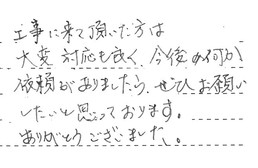 工事に来て頂いた方は
大変 対応も良く、今後の何か
依頼がありましたら、ぜひお願い
したいと思っております。
ありがとうございました。